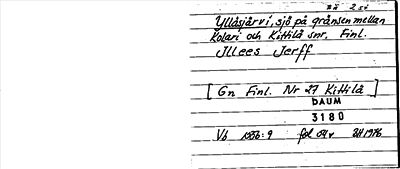 Ylläsjärvi, sjö på gränsen mellan
Kolari och Kittilä snr, Finl.
Jllees Jerff
[Gn Finl. Nr 27 Kittilä]
DAUM
3180
Vb fol 04v 2H 1976